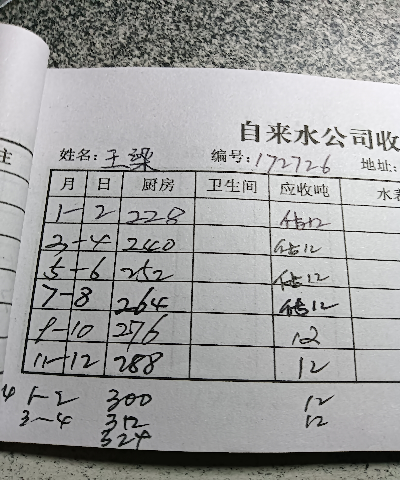 主
自来水公司收
姓名: 王梁 编号: 172726 地址:
月 日 厨房 卫生间 应收吨 水表
1-2 228 估12
3-4 240 估12
5-6 252 估12
7-8 264 估12
9-10 276 12
11-12 288 12
4 1-2 300 12
3-4 312 12
324